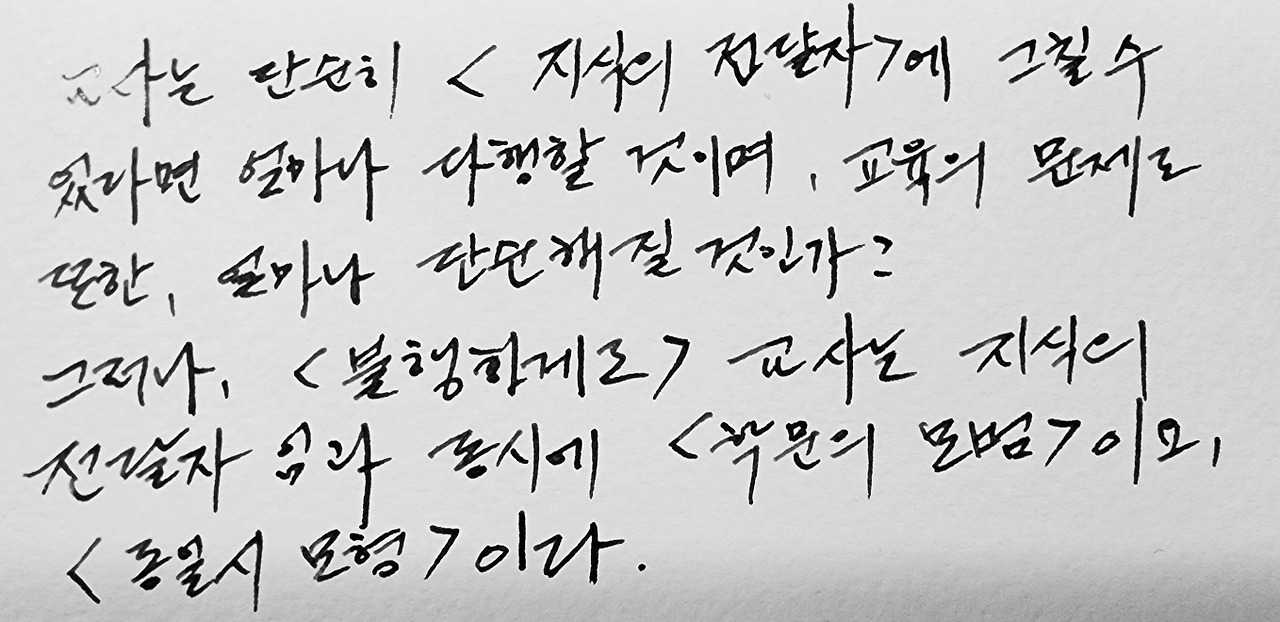 교사는 단순히 < 지식의 전달자>에 그칠 수
있다면 얼마나 다행할 것이며, 교육의 문제도
또한, 얼마나 단순해질 것인가?
그러나, <불행하게도> 교사는 지식의
전달자임과 동시에 <학문의 모범>이요,
<동일시 모형>이다.